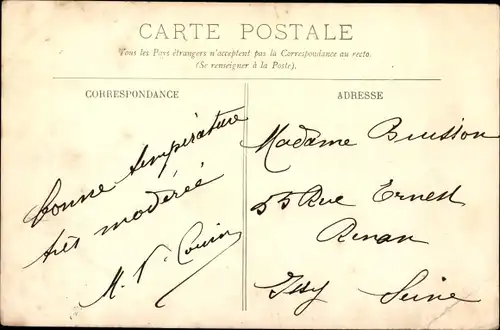 CARTE POSTALE
Tous les Pays étrangers n'acceptent pas la Correspondance au recto.
(Se renseigner à la Poste).
CORRESPONDANCE
bonne température
très modérée
ADRESSE
Madame Buisson
55 Rue Ernest
Renan
Issy Seine